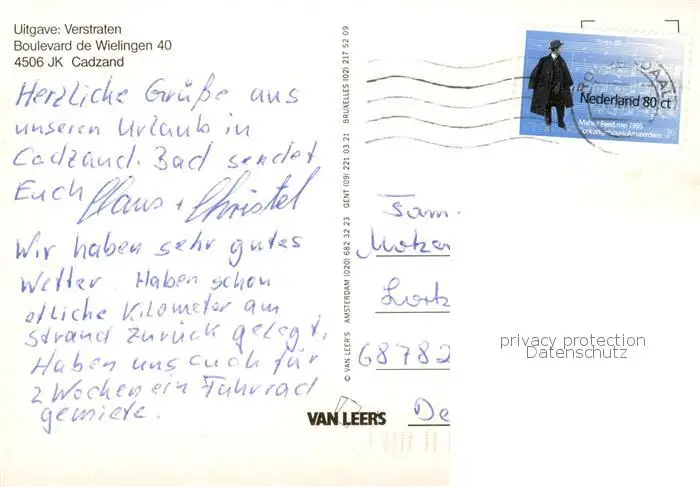 Uitgave: Verstraten
Boulevard de Wielingen 40
4506 JK Cadzand
Herzliche Grüße aus
unseren Urlaub in
Cadzand. Bad sendet
Euch Claus + Christel
Wir haben sehr gutes
Wetter. Haben schon
etliche Kilometer am
Strand zurück gelegt.
Haben uns auch für
2 Wochen ein Fahrrad
gemiete.
© VAN LEER'S AMSTERDAM (020) 682 32 23 GENT (09) 221 03 21 BRUXELLES (02) 217 52 09
VAN LEER'S
ROOSENDAAL
Nederland 80 ct
Mahler Feest mei 1995
Concertgebouw Amsterdam
Fam.
68782
De
privacy protection
Datenschutz